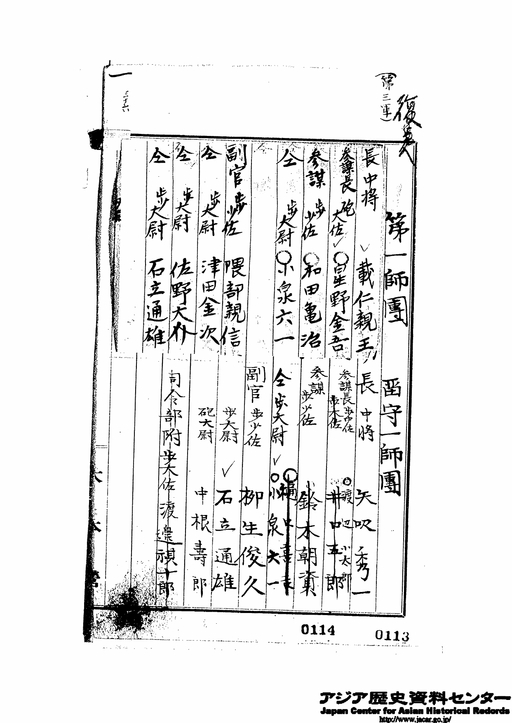 (第三軍)
復員
第一師團
長中将 載仁親王
参謀長 砲大佐 星野金吾
参謀 歩少佐 和田亀治
仝 歩大尉 小泉六一
副官 歩少佐 隈部親信
仝 歩大尉 津田金次
仝 歩大尉 佐野天朴
仝 歩大尉 石立通雄
留守一師團
長 中将 矢吹秀一
参謀長 歩中佐 渡辺小太郎
歩大佐 井口五郎
参謀 歩少佐 鈴木朝資
樋口
仝 歩大尉 小泉六一
副官 歩少佐 柳生俊久
歩大尉 石立通雄
砲大尉 中根壽郎
司令部附 歩大佐 渡邊禎十郎
大本營
0114
0113
アジア歴史資料センター
Japan Center for Asian Historical Records
http://www.jacar.go.jp/